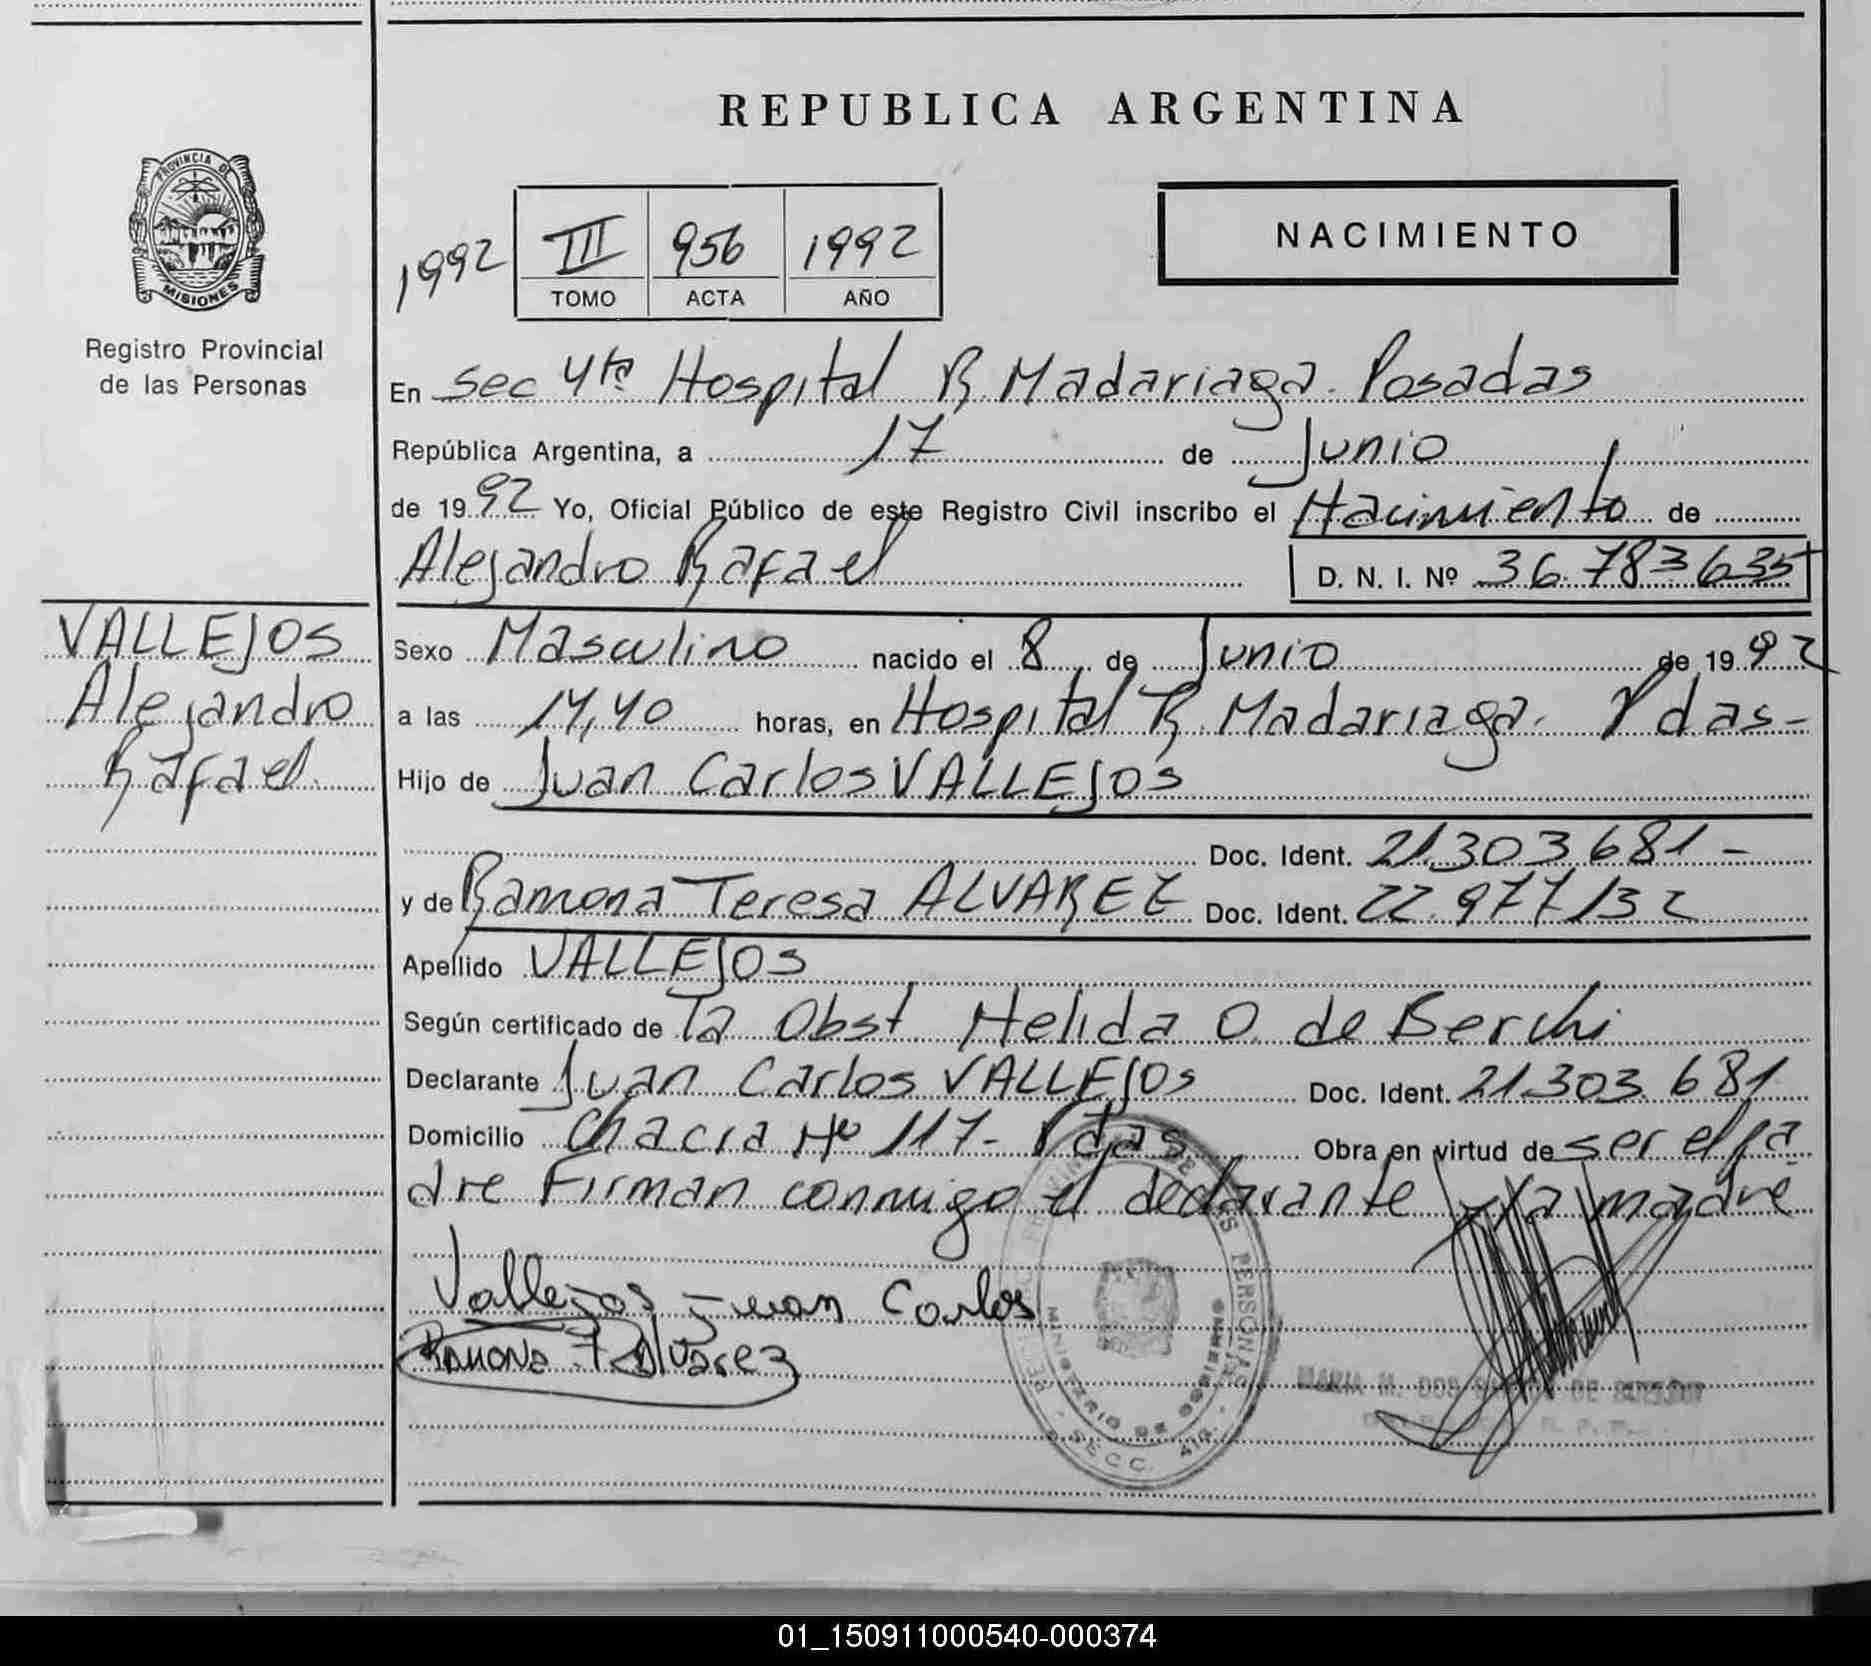 REPUBLICA ARGENTINA
PROVINCIA DE
MISIONES
Registro Provincial
de las Personas
1992
III 956 1992
TOMO ACTA AÑO
NACIMIENTO
En Sec 4ta Hospital R. Madariaga. Posadas
República Argentina, a 17 de Junio
de 1992 Yo, Oficial Público de este Registro Civil inscribo el Nacimiento de
Alejandro Rafael D. N. I. Nº 36.783635
VALLEJOS
Alejandro
Rafael.
Sexo Masculino nacido el 8 de Junio de 1992
a las 14,40 horas, en Hospital R. Madariaga. Pdas-
Hijo de Juan Carlos VALLEJOS
Doc. Ident. 21.303.681-
y de Ramona Teresa ALVAREZ Doc. Ident. 22.977132
Apellido VALLEJOS
Según certificado de la Obst. Nelida O. de Berchi
Declarante Juan Carlos VALLEJOS Doc. Ident. 21.303.681
Domicilio Chacra Nº 117- Pdas Obra en virtud de ser el pa
dre Firman conmigo el declarante y la madre
Vallejos Juan Carlos
Ramona T Alvarez
PERSONAS
MINISTERIO DE GOBIERNO
SECC. 4ta.
MARIA M. DOS DE
01_150911000540-000374